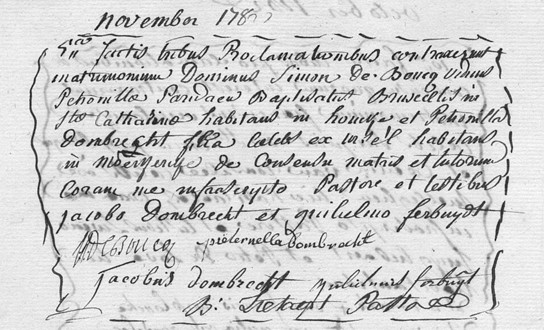 november 178
factis tribus Proclamationibus contraxerunt
matrimonium Dominus Simon de Boucq viduus
Petronillæ Paridaen Baptisatus Bruxellis in
sta Catharina habitans in et Petronilla
dombreght filia cælebs ex habitans
in de Consensu matris et tutorum
Coram me infrascripto Pastore et testibus
jacobo Dombrecht et guilielmo ferbuydt
pieternella dombrecht
jacobus dombrecht guilielmus ferbuyt
B: Pastor